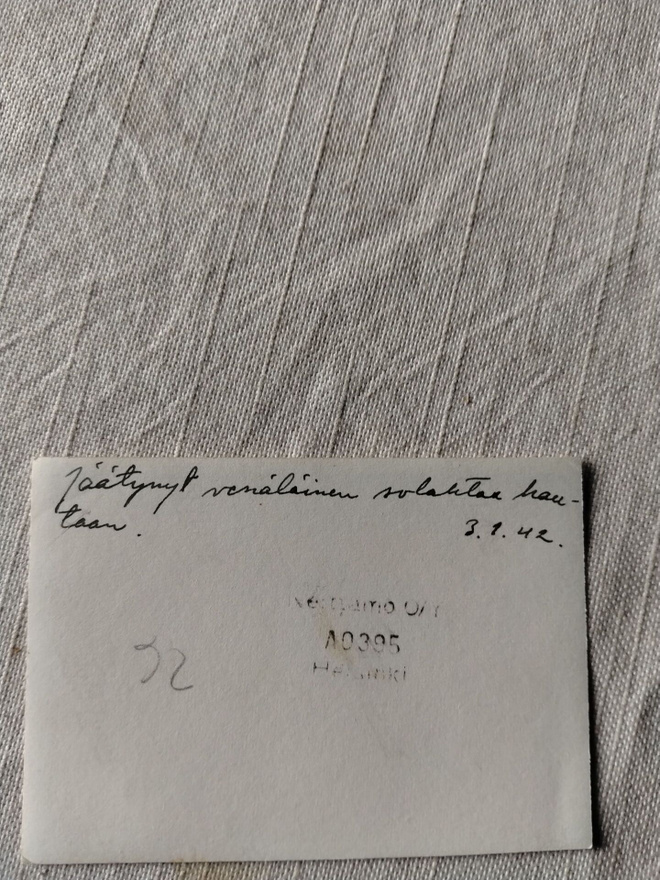 Jäätynyt venäläinen solahtaa hau-
taan.
3.1.42.
O/Y
A0395
Helsinki
32